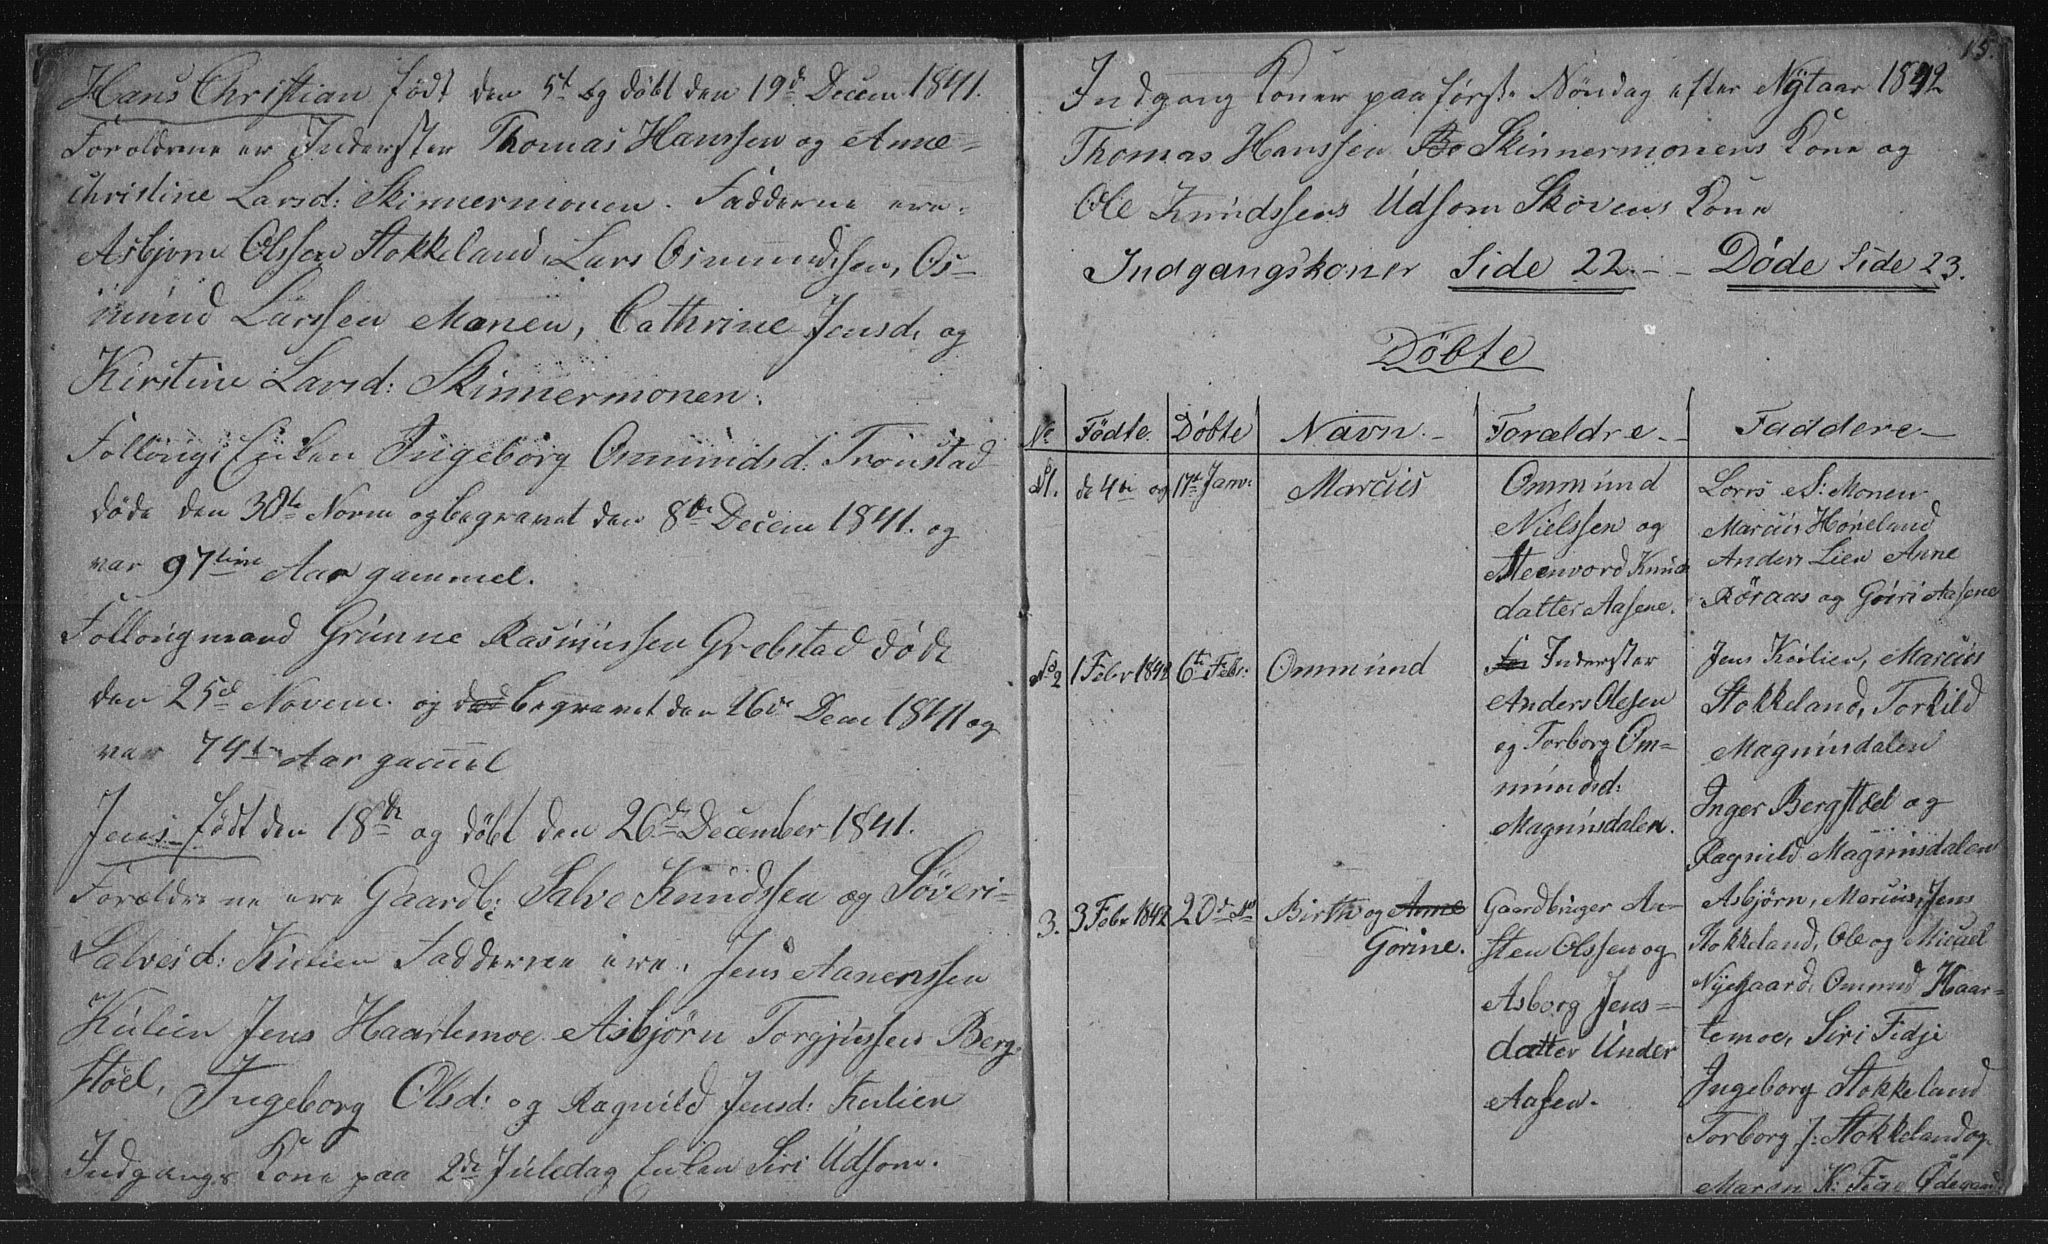 Hans Christian født den 5t og døbt den 19d Decem 1841.
Foroldrene er Inderster Thomas Hanssen og Anne
Christine Larsd: Skinnermonen. Fadderne ere.
Asbjorn Olssen Stokkeland, Lars Osmundssen, Os-
mund Larssen Monen, Cathrine Jensd. og
Kirstine Larsd: Skinnermonen.
Enken Ingeborg Ommundsd: Tronstad
døde den 30te Novm og begravet den 8de Decem 1841. og
var 97tive Aar gammel.
Gunne Rasmussen Grebstad døde
den 25d Novem. og begravet den 16de Dem 1841 og
var 74 Aar gammel
Jens født den 18de og døbt den 26de December 1841.
Forældrene ere Gaardb: Salve Knudssen og Søveri
Salvesd: Kulien Fadderne ere. Jens Aanenssen
Kulien Jens Haartemoe Asbjørn Torgjussen Berg-
støel, Ingeborg Olsd: og Ragnild Jensd: Kulien
Indgangs Kone paa 2de Juledag Enken Siri Udsom.
15.
Indgang Koner paa første Søndag efter Nÿtaar 1842
Thomas Hanssen Skinnermonens Kone og
Ole Knudssens Udsom Skovens Kone
Indgangskoner Side 22. - - Døde Side 23.
Døbte
No Födte. Døbte Navn. - Forældre. - Faddere -
1. de 4de og 17t Janv: Marcus
Ommund
Nielssen og
Steenvord Knud
datter Aasene.
Lars S: Monen
Marcus Høneland
Anders Lien Anne
Röraas og Guri Aasene
No 2 1 Febr 1842 6te Febr: Ommund
Inderster
Anders Olesen
og Torborg Om-
mundsd:
Magnusdalen.
Jens Kulien, Marcus
Stokkeland, Torkild
Magnusdalen
Inger Bergstøel og
Ragnild Magnusdalen
3. 3 Febr 1842 20de Birthe og Anne
Gorine.
Gaardbruger An-
sten Olssen og
Asborg Jens-
datter Under
Aasen.
Asbjörn, Marcus, Jens
Stokkeland, Ole og Micael
Nÿegaard, Ommund Haar-
temoe, Siri Fidje
Ingeborg Stokkeland
Torborg J: Stokkeland og
Maren K: Ødegaard